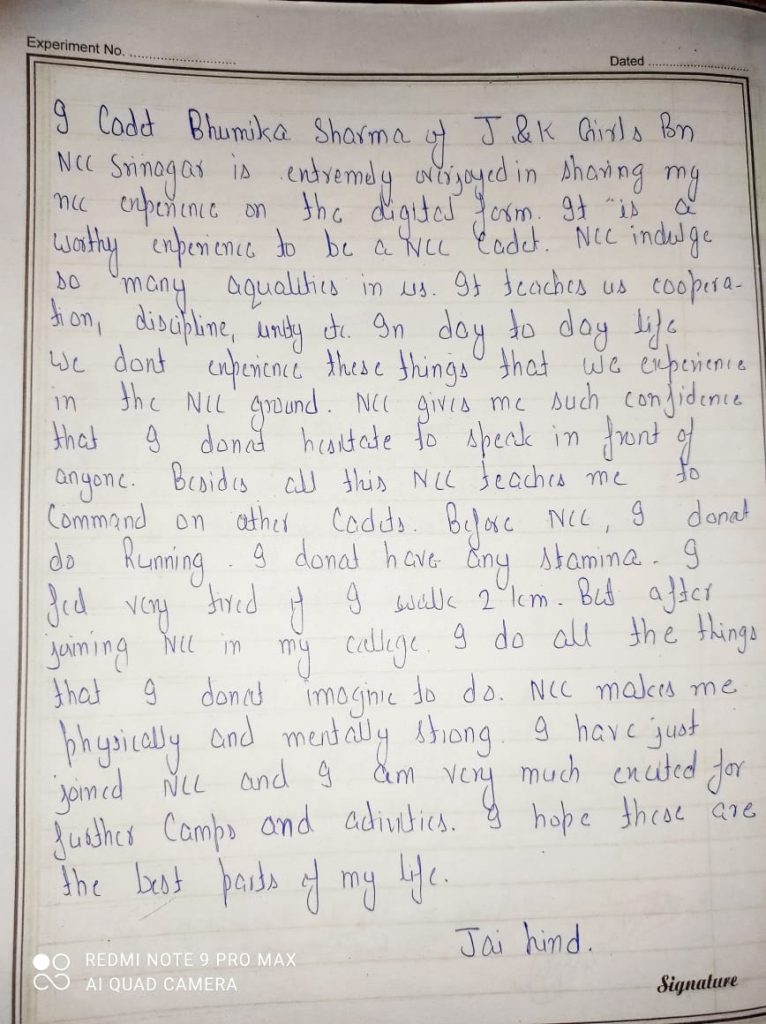 Experiment No. ........................
Dated ........................
I Cadet Bhumika Sharma of J&K Girls Bn
NCC Srinagar is entremely overjoyed in sharing my
ncc enperience on the digital form. It is a
worthy enperience to be a NCC Cadet. NCC indulge
so many aqualities in us. It teaches us coopera-
tion, discipline, unity etc. In day to day life
we dont enperience these things that we enperience
in the NCC ground. NCC gives me such confidence
that I donot hesitate to speak in front of
anyone. Besides all this NCC teaches me to
Command on other Cadets. Before NCC, I donot
do Running. I donot have any stamina. I
feel very tired if I walk 2 km. But after
joining NCC in my college. I do all the things
that I donot imagnie to do. NCC makes me
physically and mentally strong. I have just
joined NCC and I am very much encited for
further Camps and activities. I hope these are
the best parts of my life.
Jai hind.
REDMI NOTE 9 PRO MAX
AI QUAD CAMERA
Signature